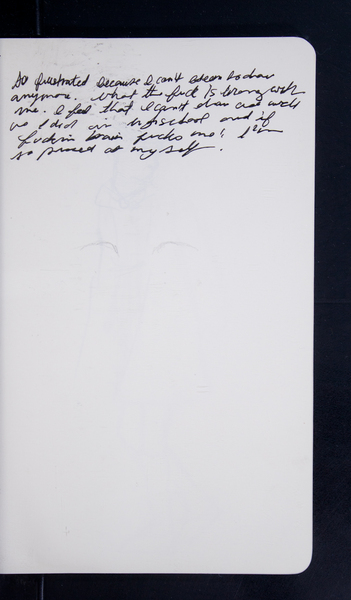 So frustrated because I can't seem to draw
anymore. What the fuck is wrong with
me. I feel that I can't draw as well
as I did in and it
fuckin brain fucks me! I'm
so pissed at my self.